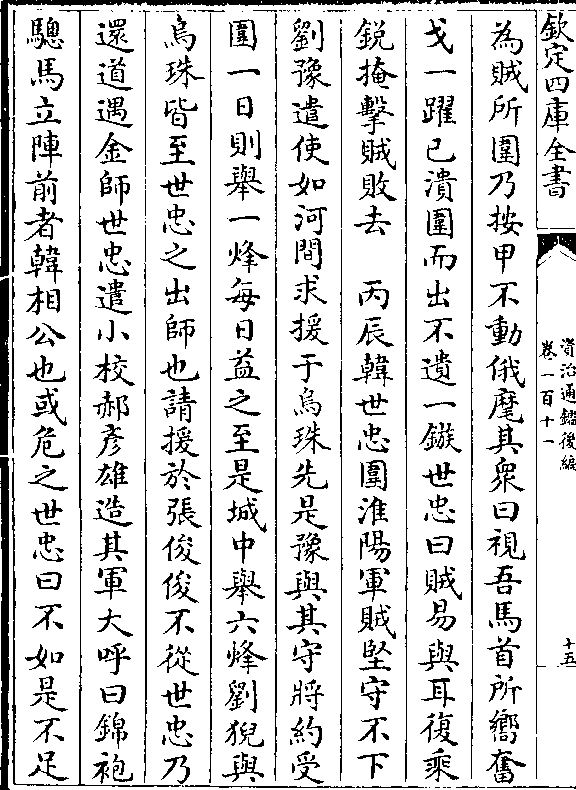 欽定四庫全書
資治通鑑後編
卷一百十一
十五
為賊所圍乃按甲不動俄麾其衆曰視吾馬首所嚮奮
戈一躍已潰圍而出不遺一鏃世忠曰賊易與耳復乘
鋭掩擊賊敗去　丙辰韓世忠圍淮陽軍賊堅守不下
劉豫遣使如河間求援于烏珠先是豫與其守將約受
圍一日則舉一烽每日益之至是城中舉六烽劉猊與
烏珠皆至世忠之出師也請援於張俊俊不從世忠乃
還道遇金師世忠遣小校郝彥雄造其軍大呼曰錦袍
驄馬立陣前者韓相公也或危之世忠曰不如是不足